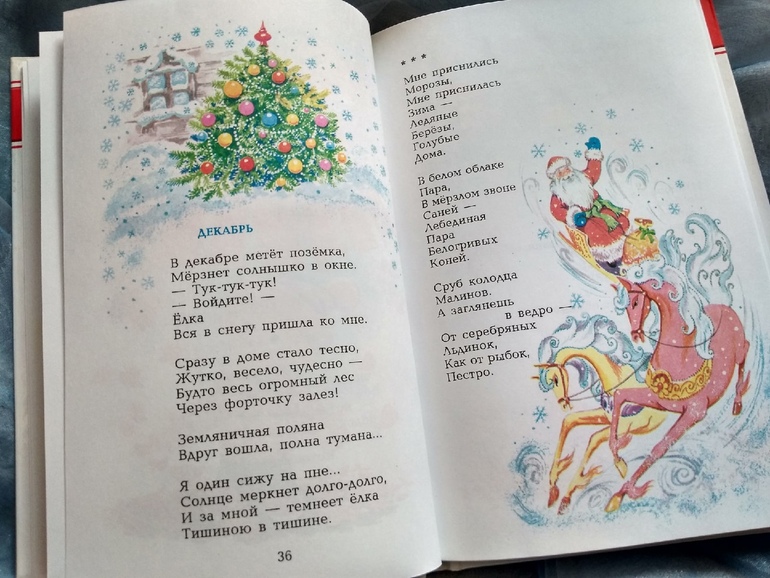 ДЕКАБРЬ
В декабре метёт позёмка,
Мёрзнет солнышко в окне.
— Тук-тук-тук!
— Войдите! —
Ёлка
Вся в снегу пришла ко мне.
Сразу в доме стало тесно,
Жутко, весело, чудесно —
Будто весь огромный лес
Через форточку залез!
Земляничная поляна
Вдруг вошла, полна тумана...
Я один сижу на пне...
Солнце меркнет долго-долго,
И за мной — темнеет ёлка
Тишиною в тишине.
36
* * *
Мне приснились
Морозы,
Мне приснилась
Зима —
Ледяные
Берёзы,
Голубые
Дома.
В белом облаке
Пара,
В мёрзлом звоне
Саней —
Лебединая
Пара
Белогривых
Коней.
Сруб колодца
Малинов.
А заглянешь
в ведро —
От серебряных
Льдинок,
Как от рыбок,
Пестро.